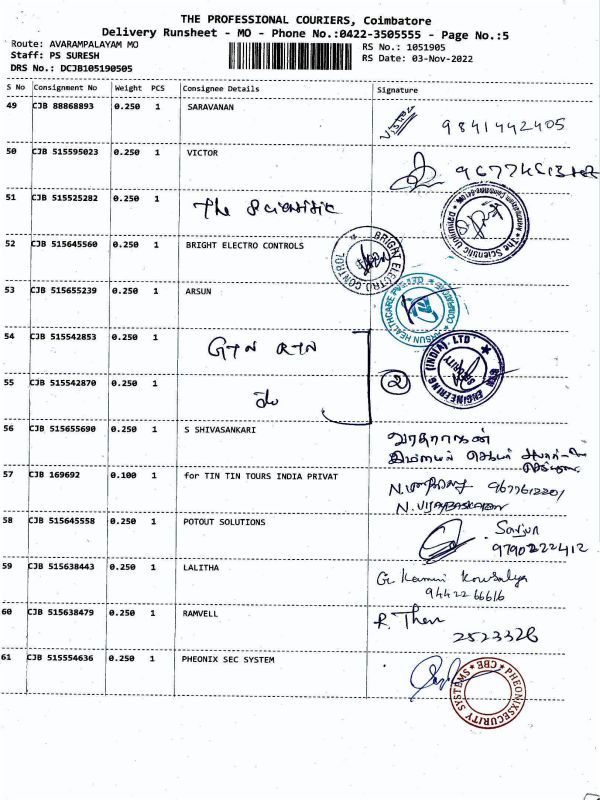 THE PROFESSIONAL COURIERS, Coimbatore
Delivery Runsheet - MO - Phone No.:0422-3505555 - Page No.:5
Route: AVARAMPALAYAM MO RS No.: 1051905
Staff: PS SURESH RS Date: 03-Nov-2022
DRS No.: DCJB105190505
S No Consignment No Weight PCS Consignee Details Signature
49 CJB 88868893 0.250 1 SARAVANAN
9841442405
50 CJB 515595023 0.250 1 VICTOR
51 CJB 515525282 0.250 1 The Scientific
52 CJB 515645560 0.250 1 BRIGHT ELECTRO CONTROLS
BRIGHT ELECTRO CONTROL
53 CJB 515655239 0.250 1 ARSUN
ARSUN HEALTHCARE PVT LTD
54 CJB 515542853 0.250 1
ENGINEERING (INDIA). LTD
SECURITY
55 CJB 515542870 0.250 1 2
56 CJB 515655690 0.250 1 S SHIVASANKARI
57 CJB 169692 0.100 1 for TIN TIN TOURS INDIA PRIVAT
N. VIJAYBASKARAN
58 CJB 515645558 0.250 1 POTOUT SOLUTIONS
9790222412
59 CJB 515638443 0.250 1 LALITHA
9442266616
60 CJB 515638479 0.250 1 RAMVELL
2523328
61 CJB 515554636 0.250 1 PHEONIX SEC SYSTEM
PHEONIXSECURITY SYSTEMS CBE